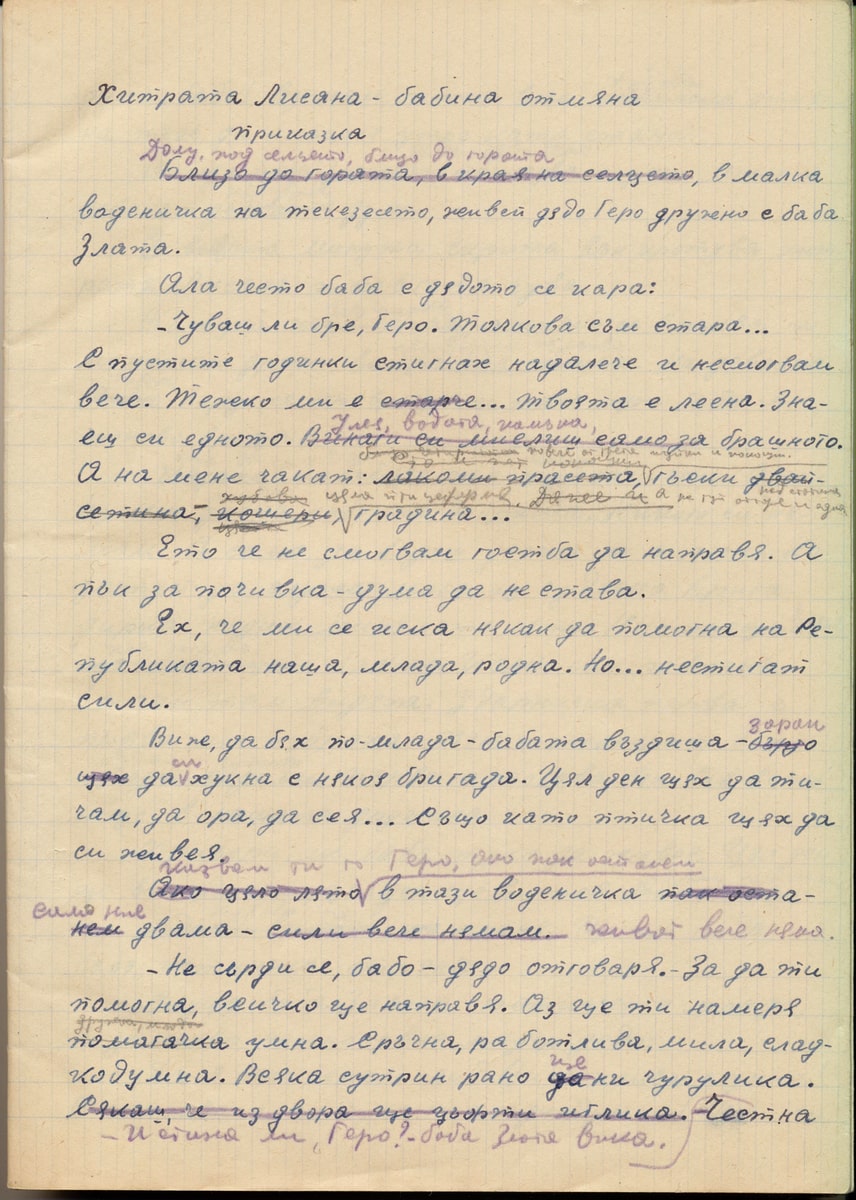 Хитрата Лисана - бабина отмяна
приказка
Долу, под селцето, близо до гората
Близо до гората, в края на селцето, в малка
воденичка на текезесето, живей дядо Геро дружно с баба
Злата.
Ала често баба с дядото се кара:
- Чуваш ли бре, Геро. Толкова съм стара...
С пустите годинки стигнах надалече и несмогвам
вече. Тежко ми е старче... Твоята е лесна. Зна-
Улея, водата, камъка,
еш си едното. Винаги си мислиш само за брашното.
А на мене чакат: лакоми прасета, гъски двай-
сетина, кошери, градина...
Ето че не смогвам гостба да направя. А
пък за почивка - дума да не става.
Ех, че ми се иска някак да помогна на Ре-
публиката наша, млада, родна. Но... нестигат
сили.
заран
Виж, да бях по-млада - бабата въздиша - бързо
щях да си хукна с някоя бригада. Цял ден щях да ти-
чам, да ора, да сея... Също като птичка щях да
си живея.
Казвам ти го Геро, ако пак останем
Ако цяло лято в тази воденичка пак оста-
само ние
нем двама - сили вече нямам. живот вече няма.
- Не сърди се, бабо - дядо отговаря. - За да ти
помогна, всичко ще направя. Аз ще ти намеря
помагачка умна. Сръчна, работлива, мила, слад-
ще
кодумна. Всяка сутрин рано да ни чурулика.
Сякаш, че из двора ще цъфти иглика. Честна
- Истина ли, Геро? - баба Злата вика.